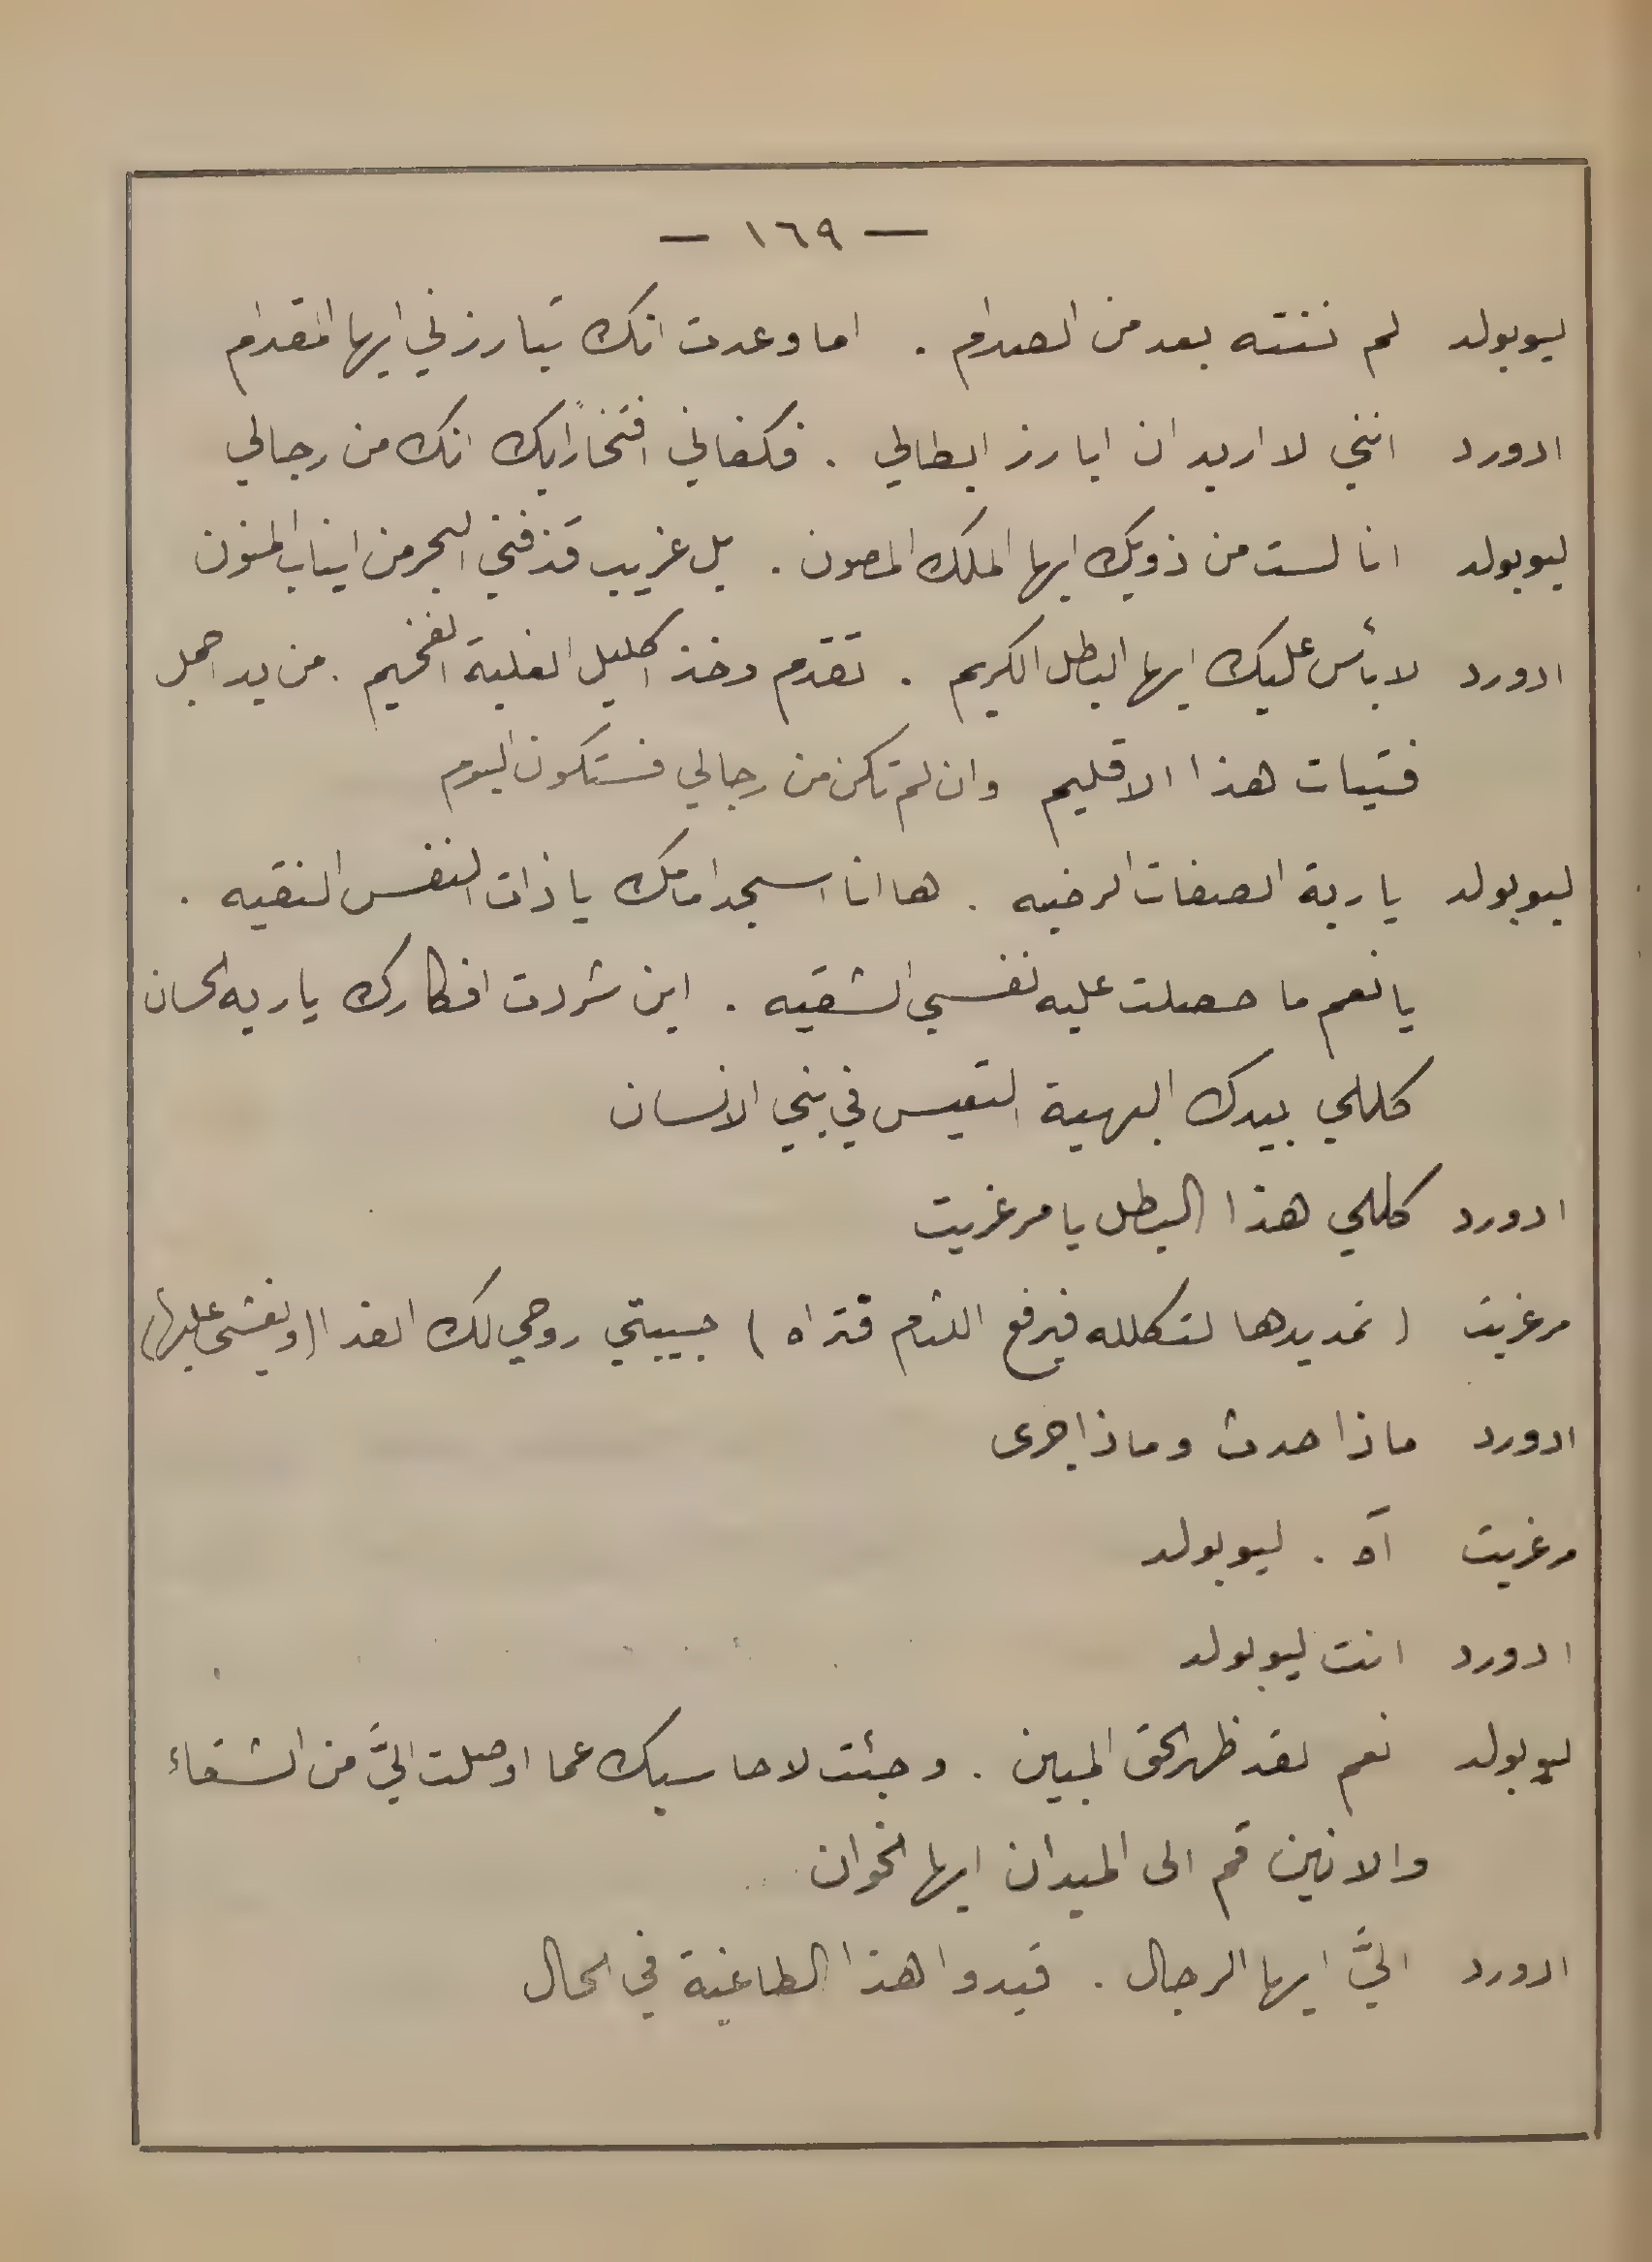 — ١٦٩ —
ليوبولد لم ننته بعد من الصدام . اما وعدت انك تبارزني ايها المقدام
ادورد انني لا اريد ان ابارز ابطالي . فكفاني افتخاراً بك انك من رجالي
ليوبولد انا لست من ذويك ايها الملك المصون . بل غريب قذفني البحر من انياب المنون
ادورد لا بأس عليك ايها البطل الكريم . تقدم وخذ اكليل الغلبة الفخيم . من يد اجمل
فتيات هذا الاقليم وان لم تكن من رجالي فستكون اليوم
ليوبولد يا ربة الصفات الرضيه . ها انا اسجد امامك يا ذات النفس النقيه .
يا نعم ما حصلت عليه نفسي الشقيه . اين شردت افكارك يا ربه الحسان
كللي بيدك البهية التعيس في بني الانسان
ادورد كللي هذا البطل يا مرغريت
مرغريت ( تمد يدها لتكلله فيرفع اللثام فتراه ) حبيبتي روحي لك الفدا ( ويغشى عليها )
ادورد ماذا حدث وماذا جرى
مرغريت آه . ليوبولد
ادورد انت ليوبولد
ليوبولد نعم لقد ظهر الحق المبين . وجئت لاحاسبك عما اوصلت اليَّ من الشقاء
والانين قم الى الميدان ايها الخوان
ادورد اليَّ ايها الرجال . قيدوا هذا الطاغية في الحال